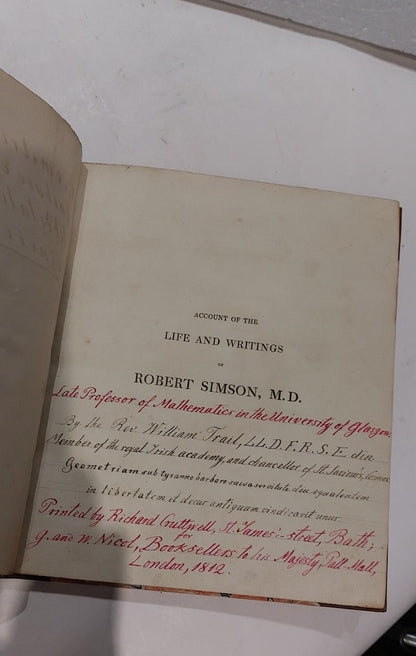 ACCOUNT OF THE
LIFE AND WRITINGS
OF
ROBERT SIMSON, M.D.
Late Professor of Mathematics in the University of Glasgow,
By the Rev. William Trail, LL.D. F. R. S. E.
Member of the royal Irish academy, and chancellor of St.
Geometriam sub tyranno barbaro saeva servitute diu squalentem
in libertatem et decus antiquam vindicavit unus
Printed by Richard Cruttwell, St. James's-street, Bath;
for
G. and W. Nicol, Booksellers to his Majesty, Pall Mall,
London, 1812.